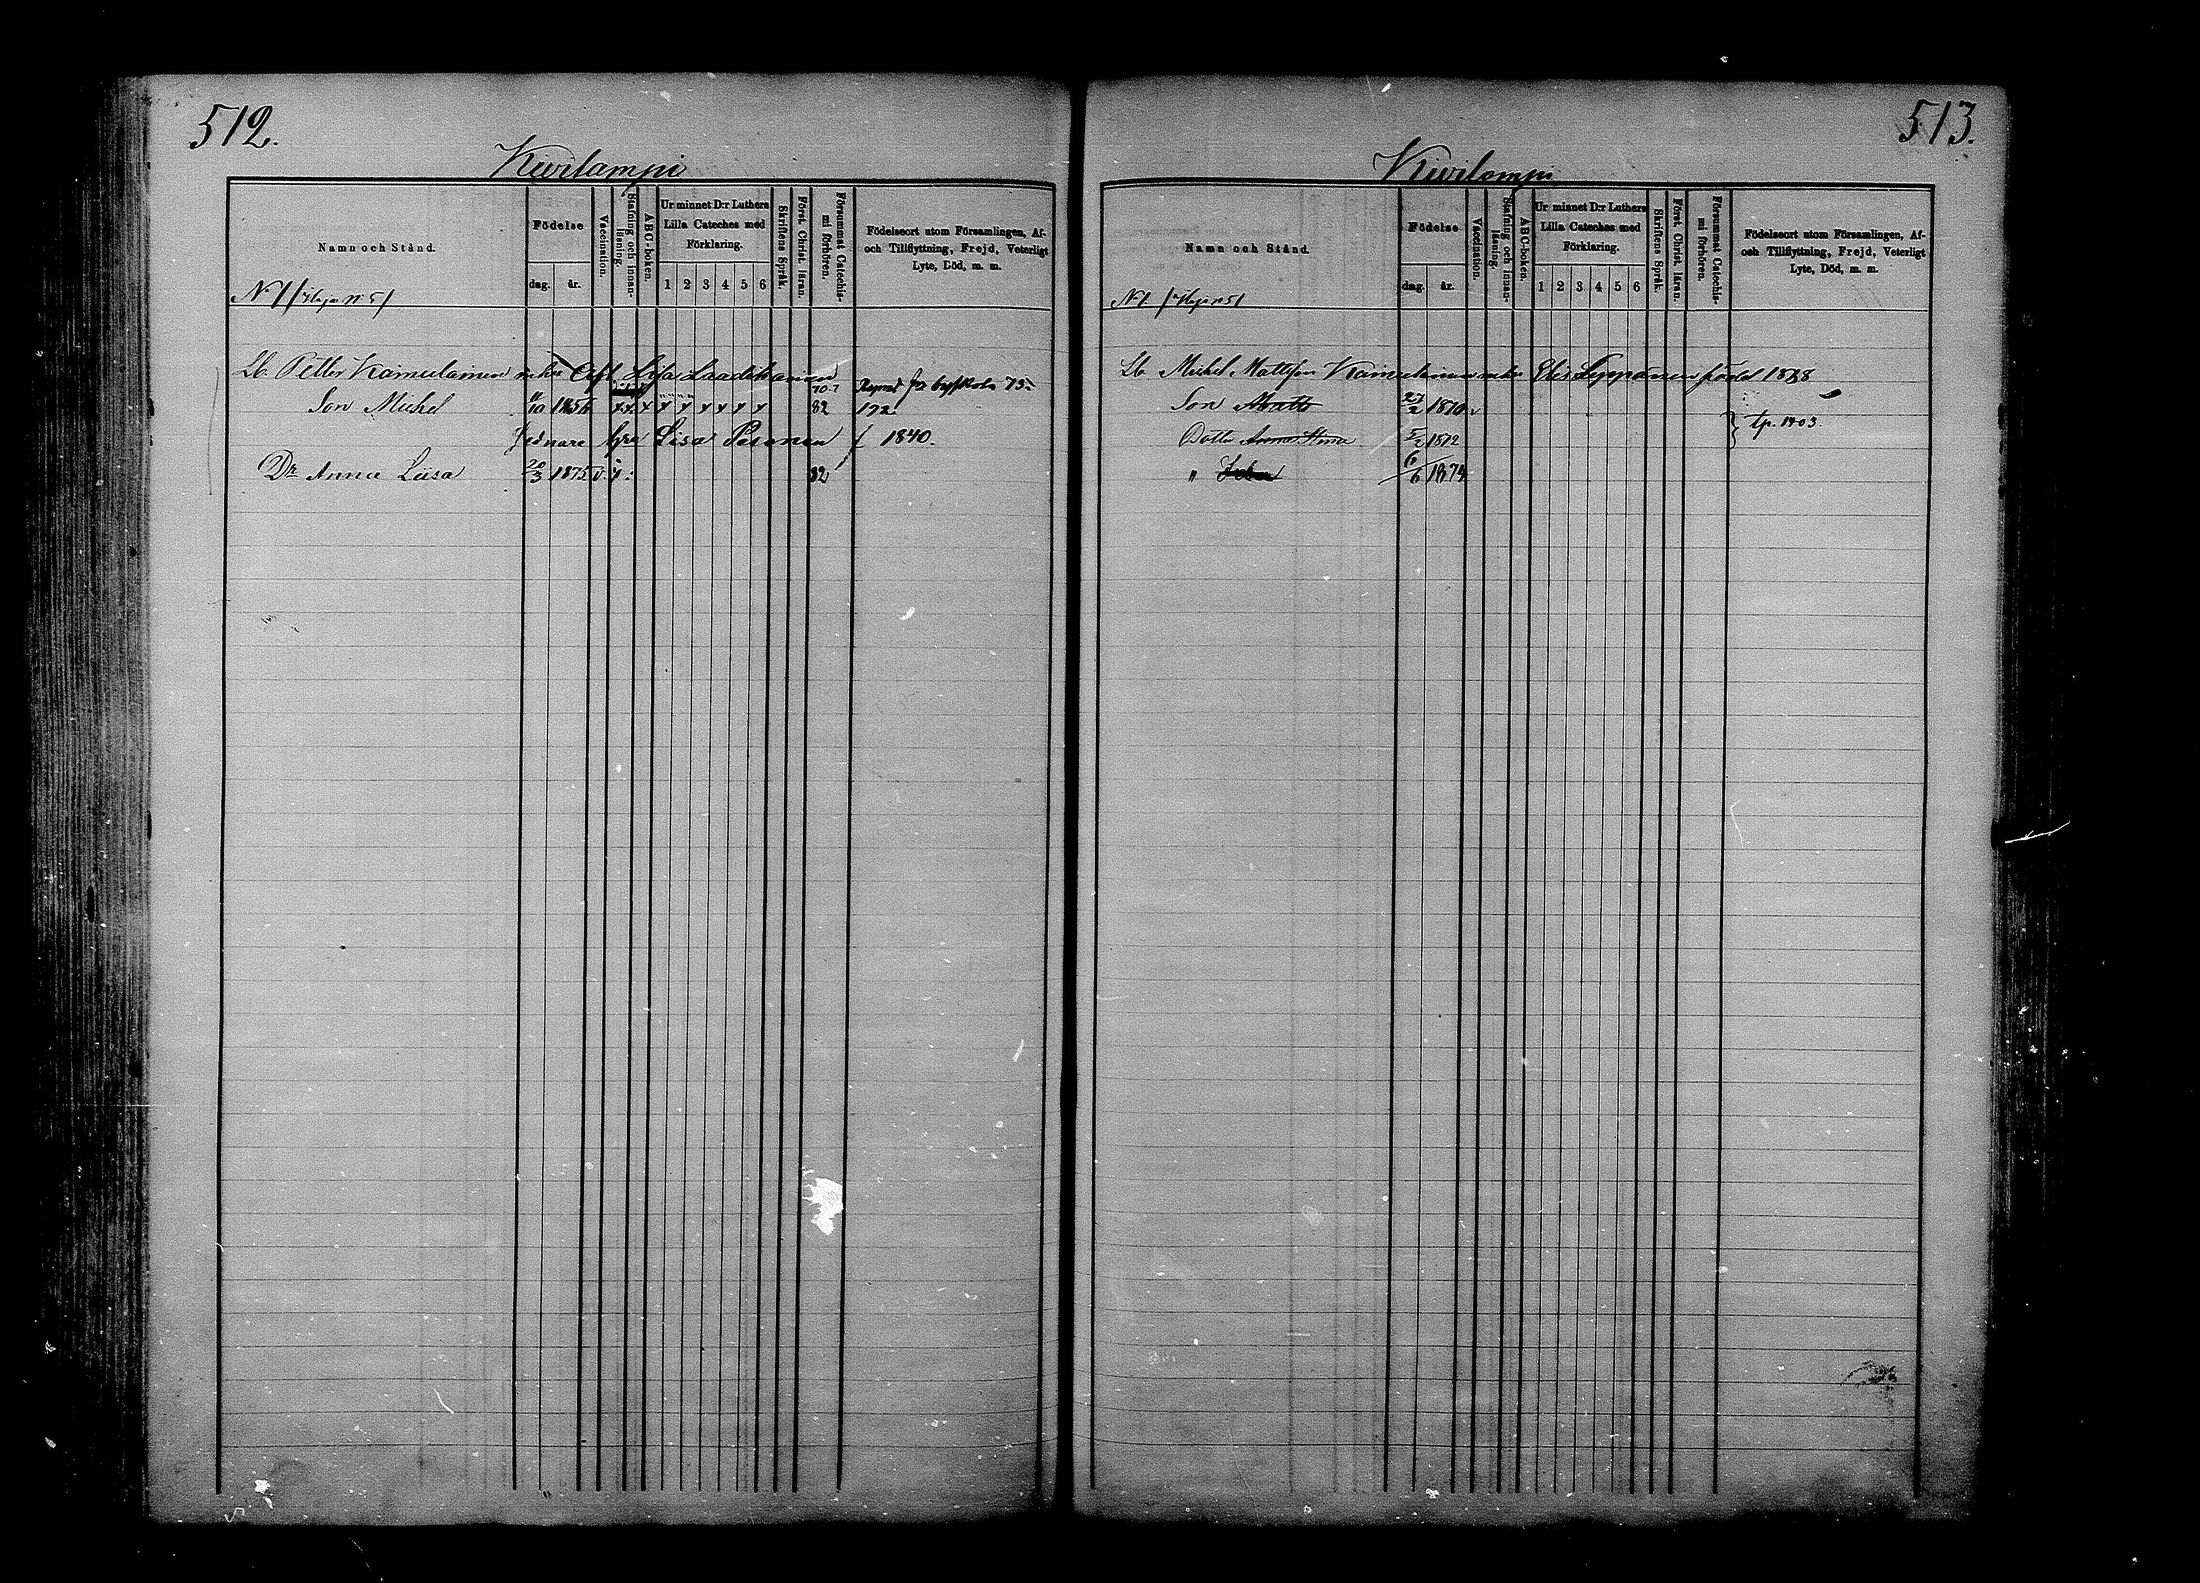 512.
Kivilampi
Namn och Stånd.
Födelse
dag. år.
Vaccination.
Stafning och innanläsning.
ABC-boken.
Ur minnet D:r Luthers Lilla Cateches med Förklaring.
1 2 3 4 5 6
Skriftens Språk.
Först. Christ. läran.
Försummat Catechismi förhören.
Födelseort utom Församlingen, Af- och Tillflyttning, Frejd, Veterligt Lyte, Död, m. m.
N 1
Lb. Petter Kainulainen
70.7
75
Son Michel 11/10 185 x x x x x x x x x 82 172
Lisa Pesonen f 1840.
Dr Anna Liisa 20/3 1875 v. 82
513.
Kivilampi
Namn och Stånd.
Födelse
dag. år.
Vaccination.
Stafning och innanläsning.
ABC-boken.
Ur minnet D:r Luthers Lilla Cateches med Förklaring.
1 2 3 4 5 6
Skriftens Språk.
Först. Christ. läran.
Försummat Catechismi förhören.
Födelseort utom Församlingen, Af- och Tillflyttning, Frejd, Veterligt Lyte, Död, m. m.
N 1
Lb. Michel Mattsson Kainulainen Leppänen född
Son Matts 27/2 1870 v
Dotter Anna Stina 5/2 1872
tp. 1403.
" 6/6 1874